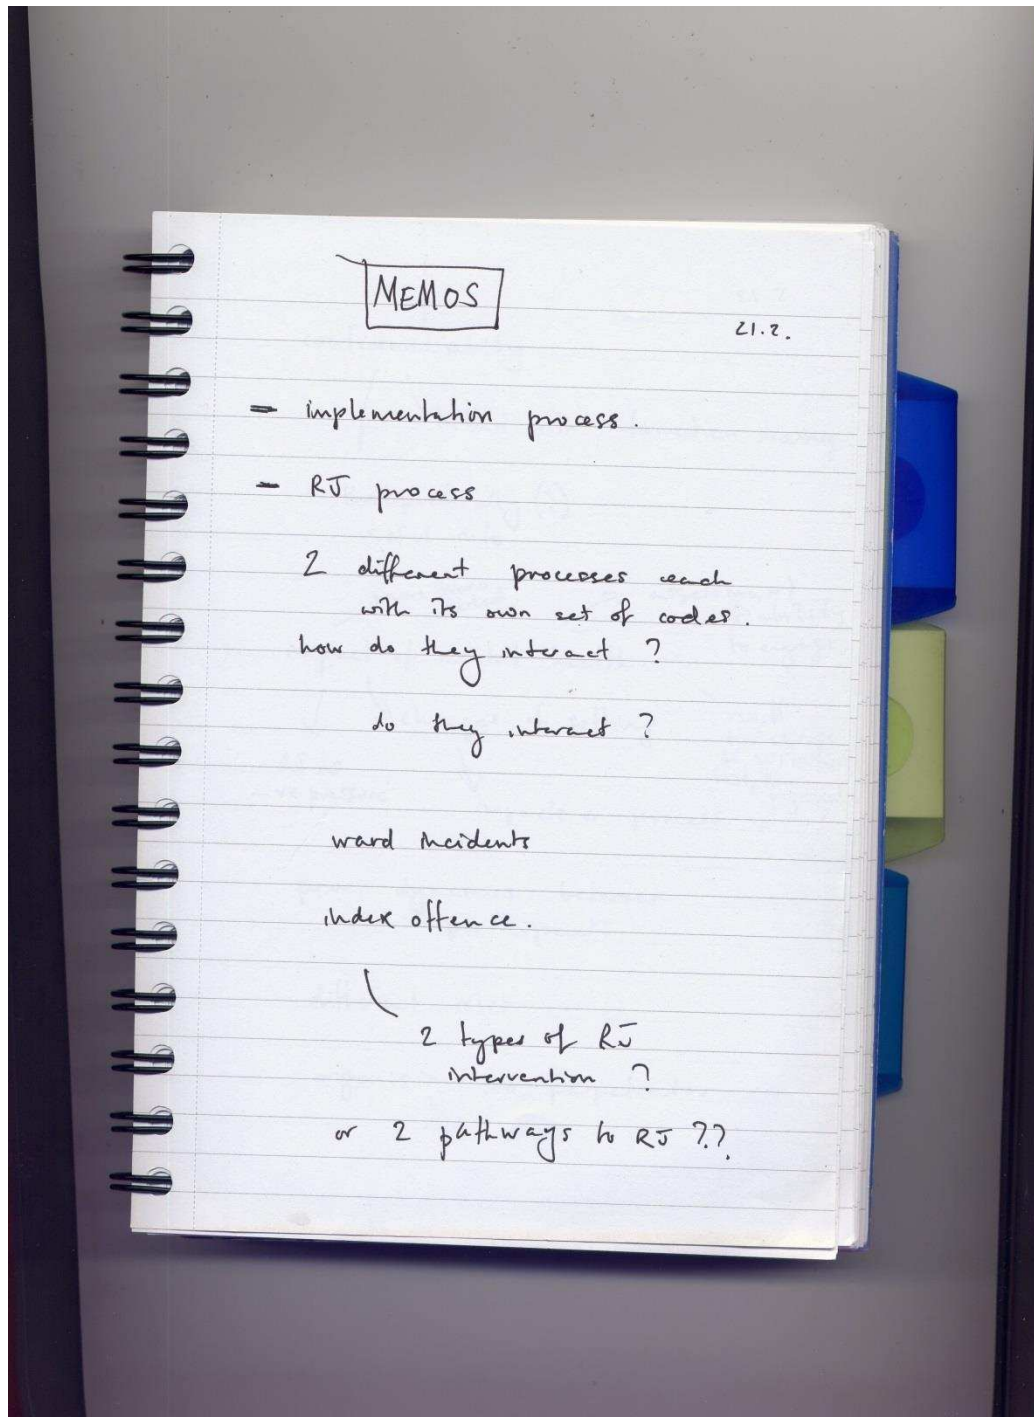 MEMOS
21.2.
- implementation process.
- RJ process
2 different processes each
with its own set of codes.
how do they interact ?
do they interact ?
ward incidents
index offence.
2 types of RJ
intervention ?
or 2 pathways to RJ ??